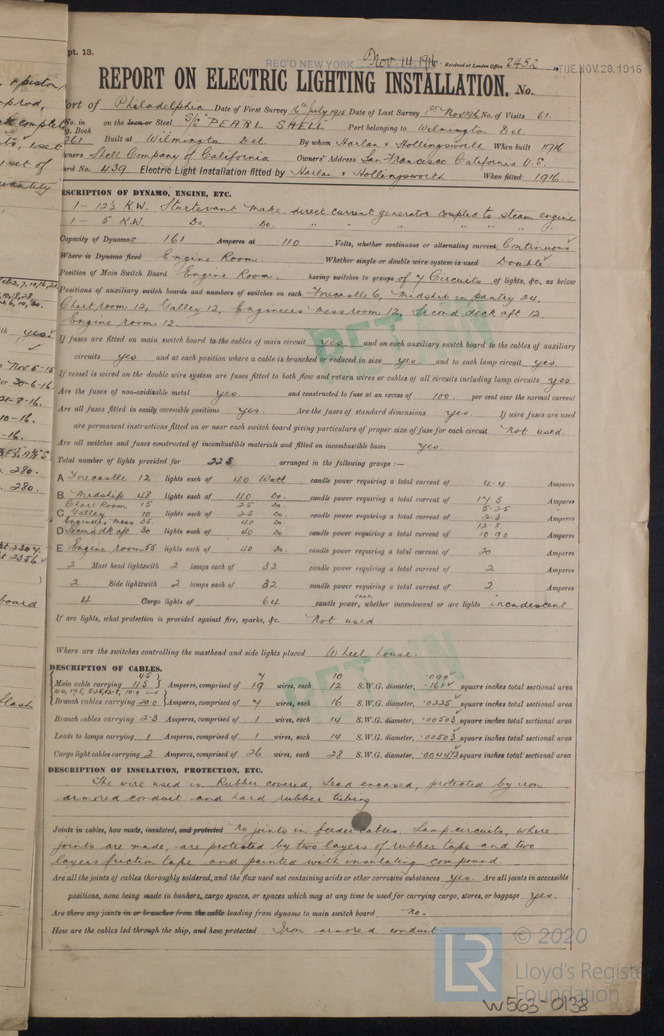 pt. 13.
REC'D NEW YORK Nov 14, 1916 Received at London Office 2452 TUE. NOV. 28. 1916
REPORT ON ELECTRIC LIGHTING INSTALLATION. No.
ort of Philadelphia Date of First Survey 16th July 1915 Date of Last Survey 1st Nov 1916 No. of Visits 61
No. in on the Iron or Steel S/S "PEARL SHELL" Port belonging to Wilmington Del
g. Book 261 Built at Wilmington Del. By whom Harlan & Hollingsworth When built 1916
wners Shell Company of California Owners' Address San Francisco California U.S.
ard No. 439 Electric Light Installation fitted by Harlan & Hollingsworth When fitted 1916
ESCRIPTION OF DYNAMO, ENGINE, ETC.
1 - 12½ K.W. Sturtevant make direct current generator coupled to steam engine
1 - 5 K.W. Do. Do. " " " " " "
Capacity of Dynamos 161 Amperes at 110 Volts, whether continuous or alternating current Continuous
Where is Dynamo fixed Engine Room. Whether single or double wire system is used Double
Position of Main Switch Board Engine Room. having switches to groups of 7 Circuits of lights, &c., as below
Positions of auxiliary switch boards and numbers of switches on each Forecastle 6, Midship in pantry 24,
Chart room 12, Galley 12, Engineers' mess room 12, Second deck aft 12,
Engine room 12
If fuses are fitted on main switch board to the cables of main circuit yes and on each auxiliary switch board to the cables of auxiliary
circuits yes and at each position where a cable is branched or reduced in size yes and to each lamp circuit yes
If vessel is wired on the double wire system are fuses fitted to both flow and return wires or cables of all circuits including lamp circuits yes
Are the fuses of non-oxidizable metal yes. and constructed to fuse at an excess of 100 per cent over the normal current
Are all fuses fitted in easily accessible positions yes. Are the fuses of standard dimensions yes. If wire fuses are used
are permanent instructions fitted on or near each switch board giving particulars of proper size of fuse for each circuit not used.
Are all switches and fuses constructed of incombustible materials and fitted on incombustible bases yes.
RETAIN
Total number of lights provided for 223 arranged in the following groups :—
A Forecastle 12 lights each of 40 Watt candle power requiring a total current of 4.4 Amperes
B Midship 48 lights each of 40 Do. candle power requiring a total current of 17.5 Amperes
Chart Room 15 25 Do. 5.25
C Galley 10 lights each of 25 Do. candle power requiring a total current of 2.3 Amperes
Engineers' Mess 35 40 Do. 12.8
D Second dk aft 30 lights each of 40 Do. candle power requiring a total current of 10.90 Amperes
E Engine room 55 lights each of 40 Do. candle power requiring a total current of 20 Amperes
2 Mast head lights with 2 lamps each of 32 candle power requiring a total current of 2 Amperes
2 Side lights with 2 lamps each of 32 candle power requiring a total current of 2 Amperes
4 Cargo lights of 64 candle power, whether incandescent or arc lights incandescent
If arc lights, what protection is provided against fire, sparks, &c. not used.
Where are the switches controlling the masthead and side lights placed Wheel house.
RETAIN
DESCRIPTION OF CABLES.
45 7 10 .090
Main cable carrying 115 Amperes, comprised of 19 wires, each 12 S.W.G. diameter, .1612 square inches total sectional area
Branch cables carrying 20.0 Amperes, comprised of 7 wires, each 16 S.W.G. diameter, .0225 square inches total sectional area
Branch cables carrying 2.3 Amperes, comprised of 1 wires, each 14 S.W.G. diameter, .00503 square inches total sectional area
Leads to lamps carrying 1 Amperes, comprised of 1 wires, each 14 S.W.G. diameter, .00503 square inches total sectional area
Cargo light cables carrying 2 Amperes, comprised of 26 wires, each 28 S.W.G. diameter, .00449 square inches total sectional area
DESCRIPTION OF INSULATION, PROTECTION, ETC.
The wire used is Rubber covered, Lead encased, protected by iron
armored conduit and hard rubber tubing
Joints in cables, how made, insulated, and protected No joints in feeder cables. Lamp circuits, where
joints are made, are protected by two layers of rubber tape and two
layers friction tape and painted with insulating compound
Are all the joints of cables thoroughly soldered, and the flux used not containing acids or other corrosive substances yes. Are all joints in accessible
positions, none being made in bunkers, cargo spaces, or spaces which may at any time be used for carrying cargo, stores, or baggage yes.
Are there any joints in or branches from the cable leading from dynamo to main switch board no.
How are the cables led through the ship, and how protected Iron armored conduit
LR © 2020
Lloyd's Register
Foundation
W563-0138